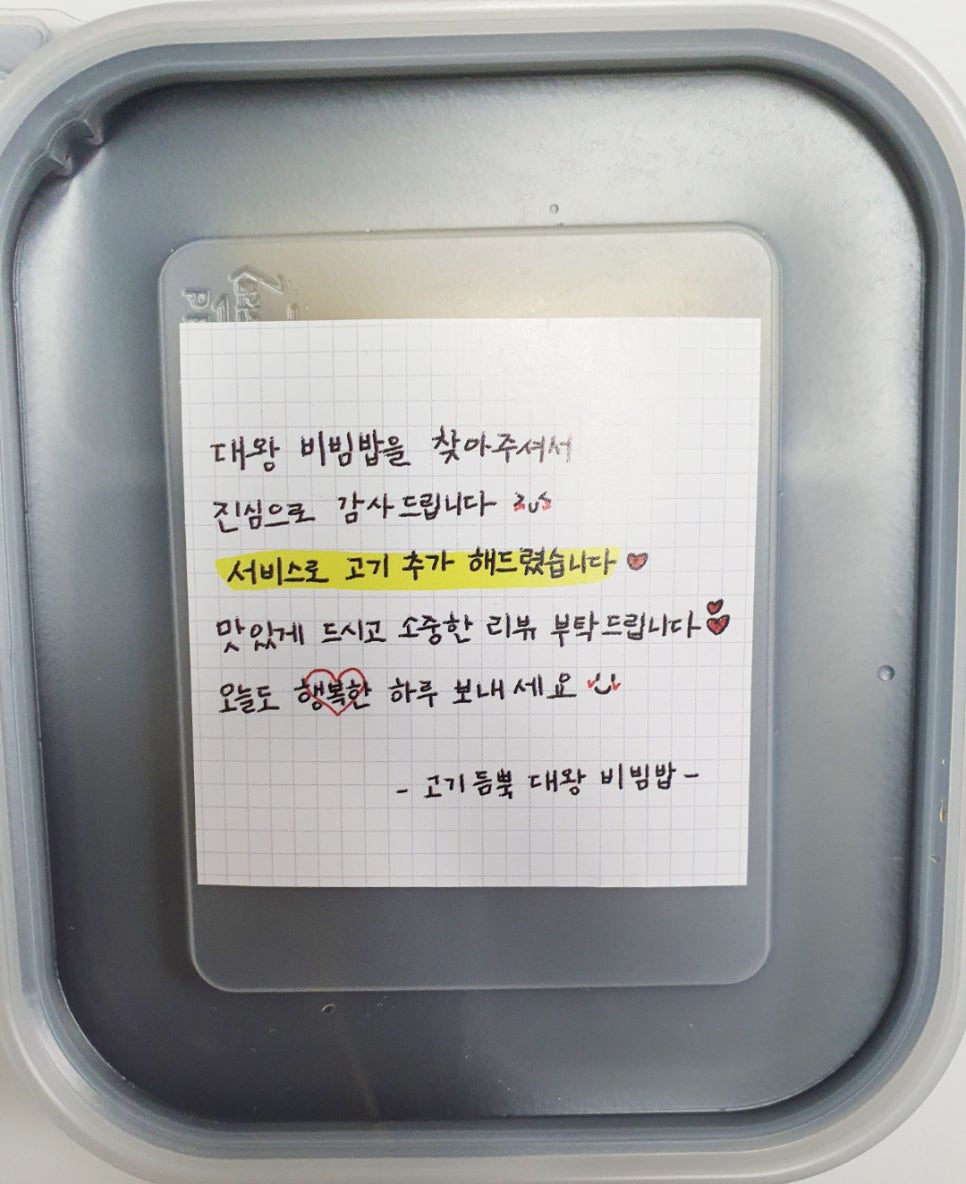 대왕 비빔밥을 찾아주셔서
진심으로 감사드립니다
서비스로 고기 추가 해드렸습니다
맛있게 드시고 소중한 리뷰 부탁드립니다
오늘도 행복한 하루 보내세요
- 고기듬뿍 대왕 비빔밥 -